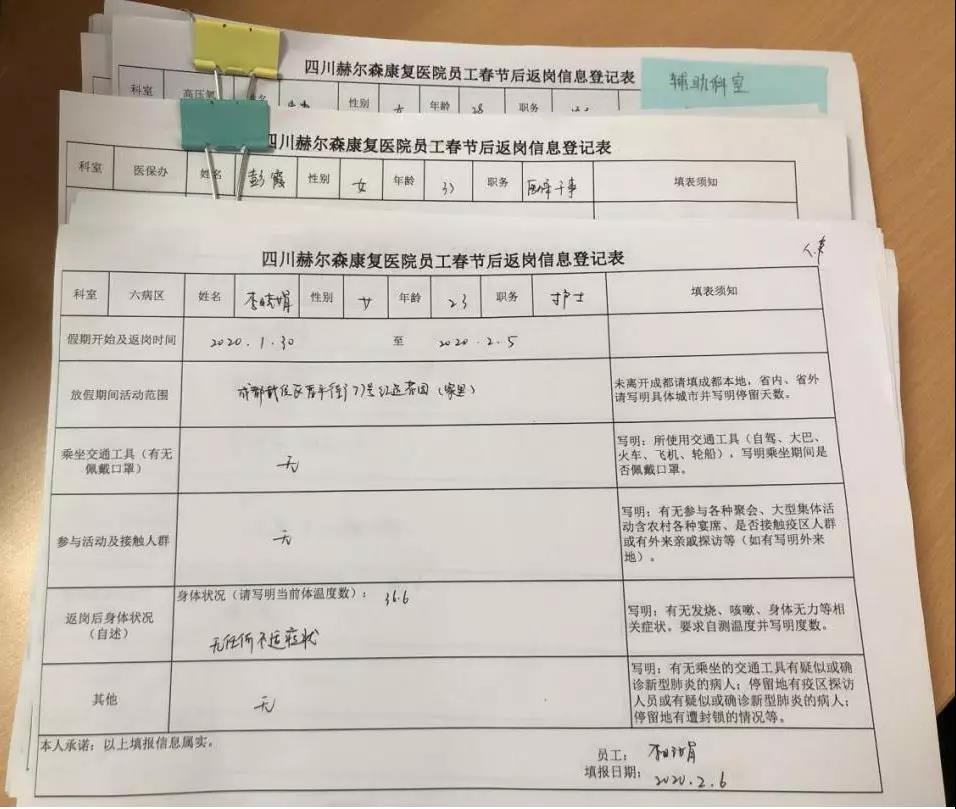 四川赫尔森康复医院员工春节后返岗信息登记表
辅助科室
科室 高压氧 姓名 性别 女 年龄 28 职务
四川赫尔森康复医院员工春节后返岗信息登记表
科室 医保办 姓名 彭霞 性别 女 年龄 33 职务 医保干事 填表须知
四川赫尔森康复医院员工春节后返岗信息登记表
科室 六病区 姓名 李晓娟 性别 女 年龄 23 职务 护士 填表须知
假期开始及返岗时间 2020.1.30 至 2020.2.5
放假期间活动范围
成都武侯区 77号 (家里)
未离开成都请填成都本地，省内、省外
请写明具体城市并写明停留天数。
乘坐交通工具（有无
佩戴口罩）
无
写明：所使用交通工具（自驾、大巴、
火车、飞机、轮船），写明乘坐期间是
否佩戴口罩。
参与活动及接触人群
无
写明：有无参与各种聚会、大型集体活
动含农村各种宴席、是否接触疫区人群
或有外来亲戚探访等（如有写明外来
地）。
返岗后身体状况
（自述）
身体状况（请写明当前体温度数）： 36.6
无任何不适症状
写明：有无发烧、咳嗽、身体无力等相
关症状。要求自测温度并写明度数。
其他
无
写明：有无乘坐的交通工具有疑似或确
诊新型肺炎的病人；停留地有疫区探访
人员或有疑似或确诊新型肺炎的病人；
停留地有遭封锁的情况等。
本人承诺：以上填报信息属实。
员工： 李晓娟
填报日期： 2020.2.6